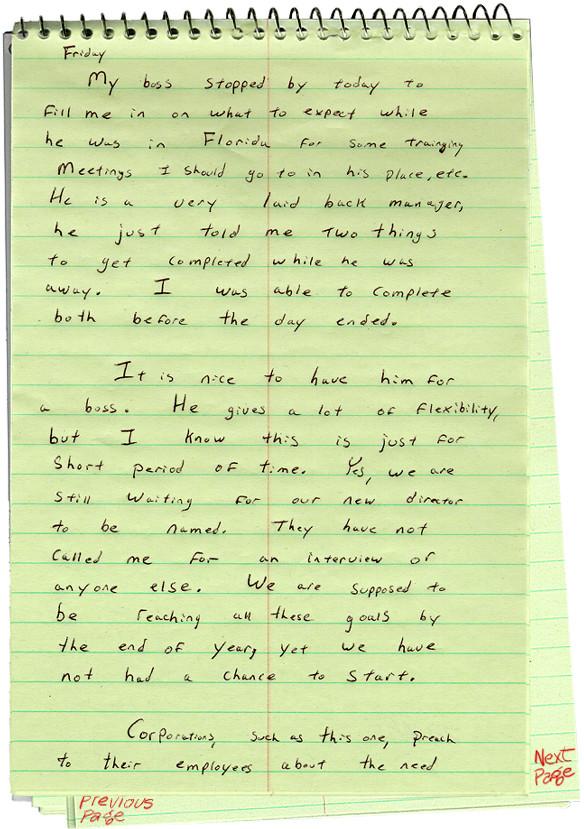 Friday
My boss stopped by today to
fill me in on what to expect while
he was in Florida for some trainging
Meetings I should go to in his place, etc.
He is a very laid back manager,
he just told me two things
to get completed while he was
away. I was able to complete
both before the day ended.
It is nice to have him for
a boss. He gives a lot of flexibility,
but I know this is just for
Short period of time. Yes, we are
still waiting for our new director
to be named. They have not
called me for an interview or
anyone else. We are supposed to
be reaching all these goals by
the end of year, yet we have
not had a chance to start.
Corporations, such as this one, preach
to their employees about the need
Next
Page
Previous
Page